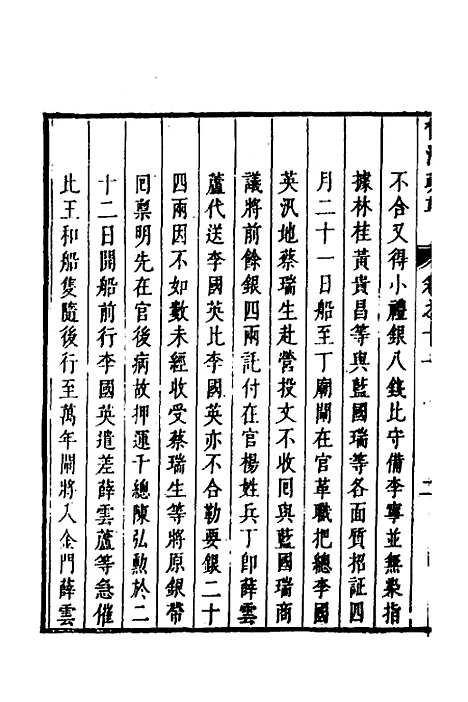 卷之十一
二
不合又得小禮銀八錢比守備李寧並無索指
據林桂黃貴昌等與藍國瑞等各面質招証四
月二十一日船至丁廟閘在官革職把總李國
英汛地蔡瑞生赴營投文不收囘與藍國瑞商
議將前餘銀四兩託付在官楊姓兵丁卽薛雲
蘆代送李國英比李國英亦不合勒要銀二十
四兩因不如數未經收受蔡瑞生等將原銀帶
囘稟明先在官後病故押運千總陳弘勲於二
十二日開船前行李國英遣差薛雲蘆等急催
此王和船隻隨後行至萬年閘將入金門薛雲